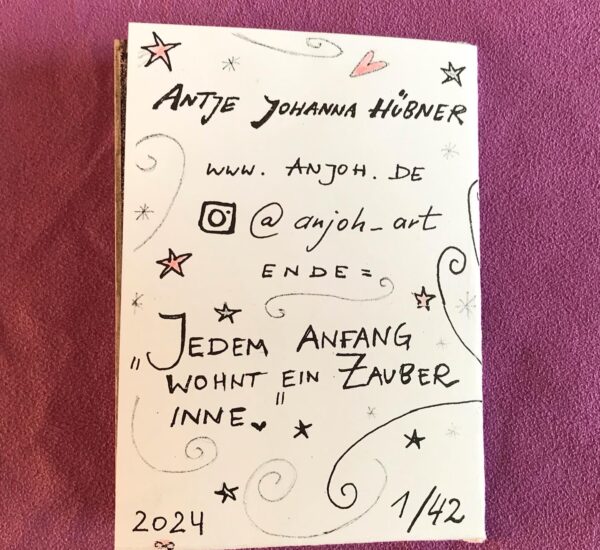 ANTJE JOHANNA HÜBNER
www. ANJOH. DE
@anjoh_art
ENDE =
„JEDEM ANFANG
WOHNT EIN ZAUBER
INNE."
2024
1/42